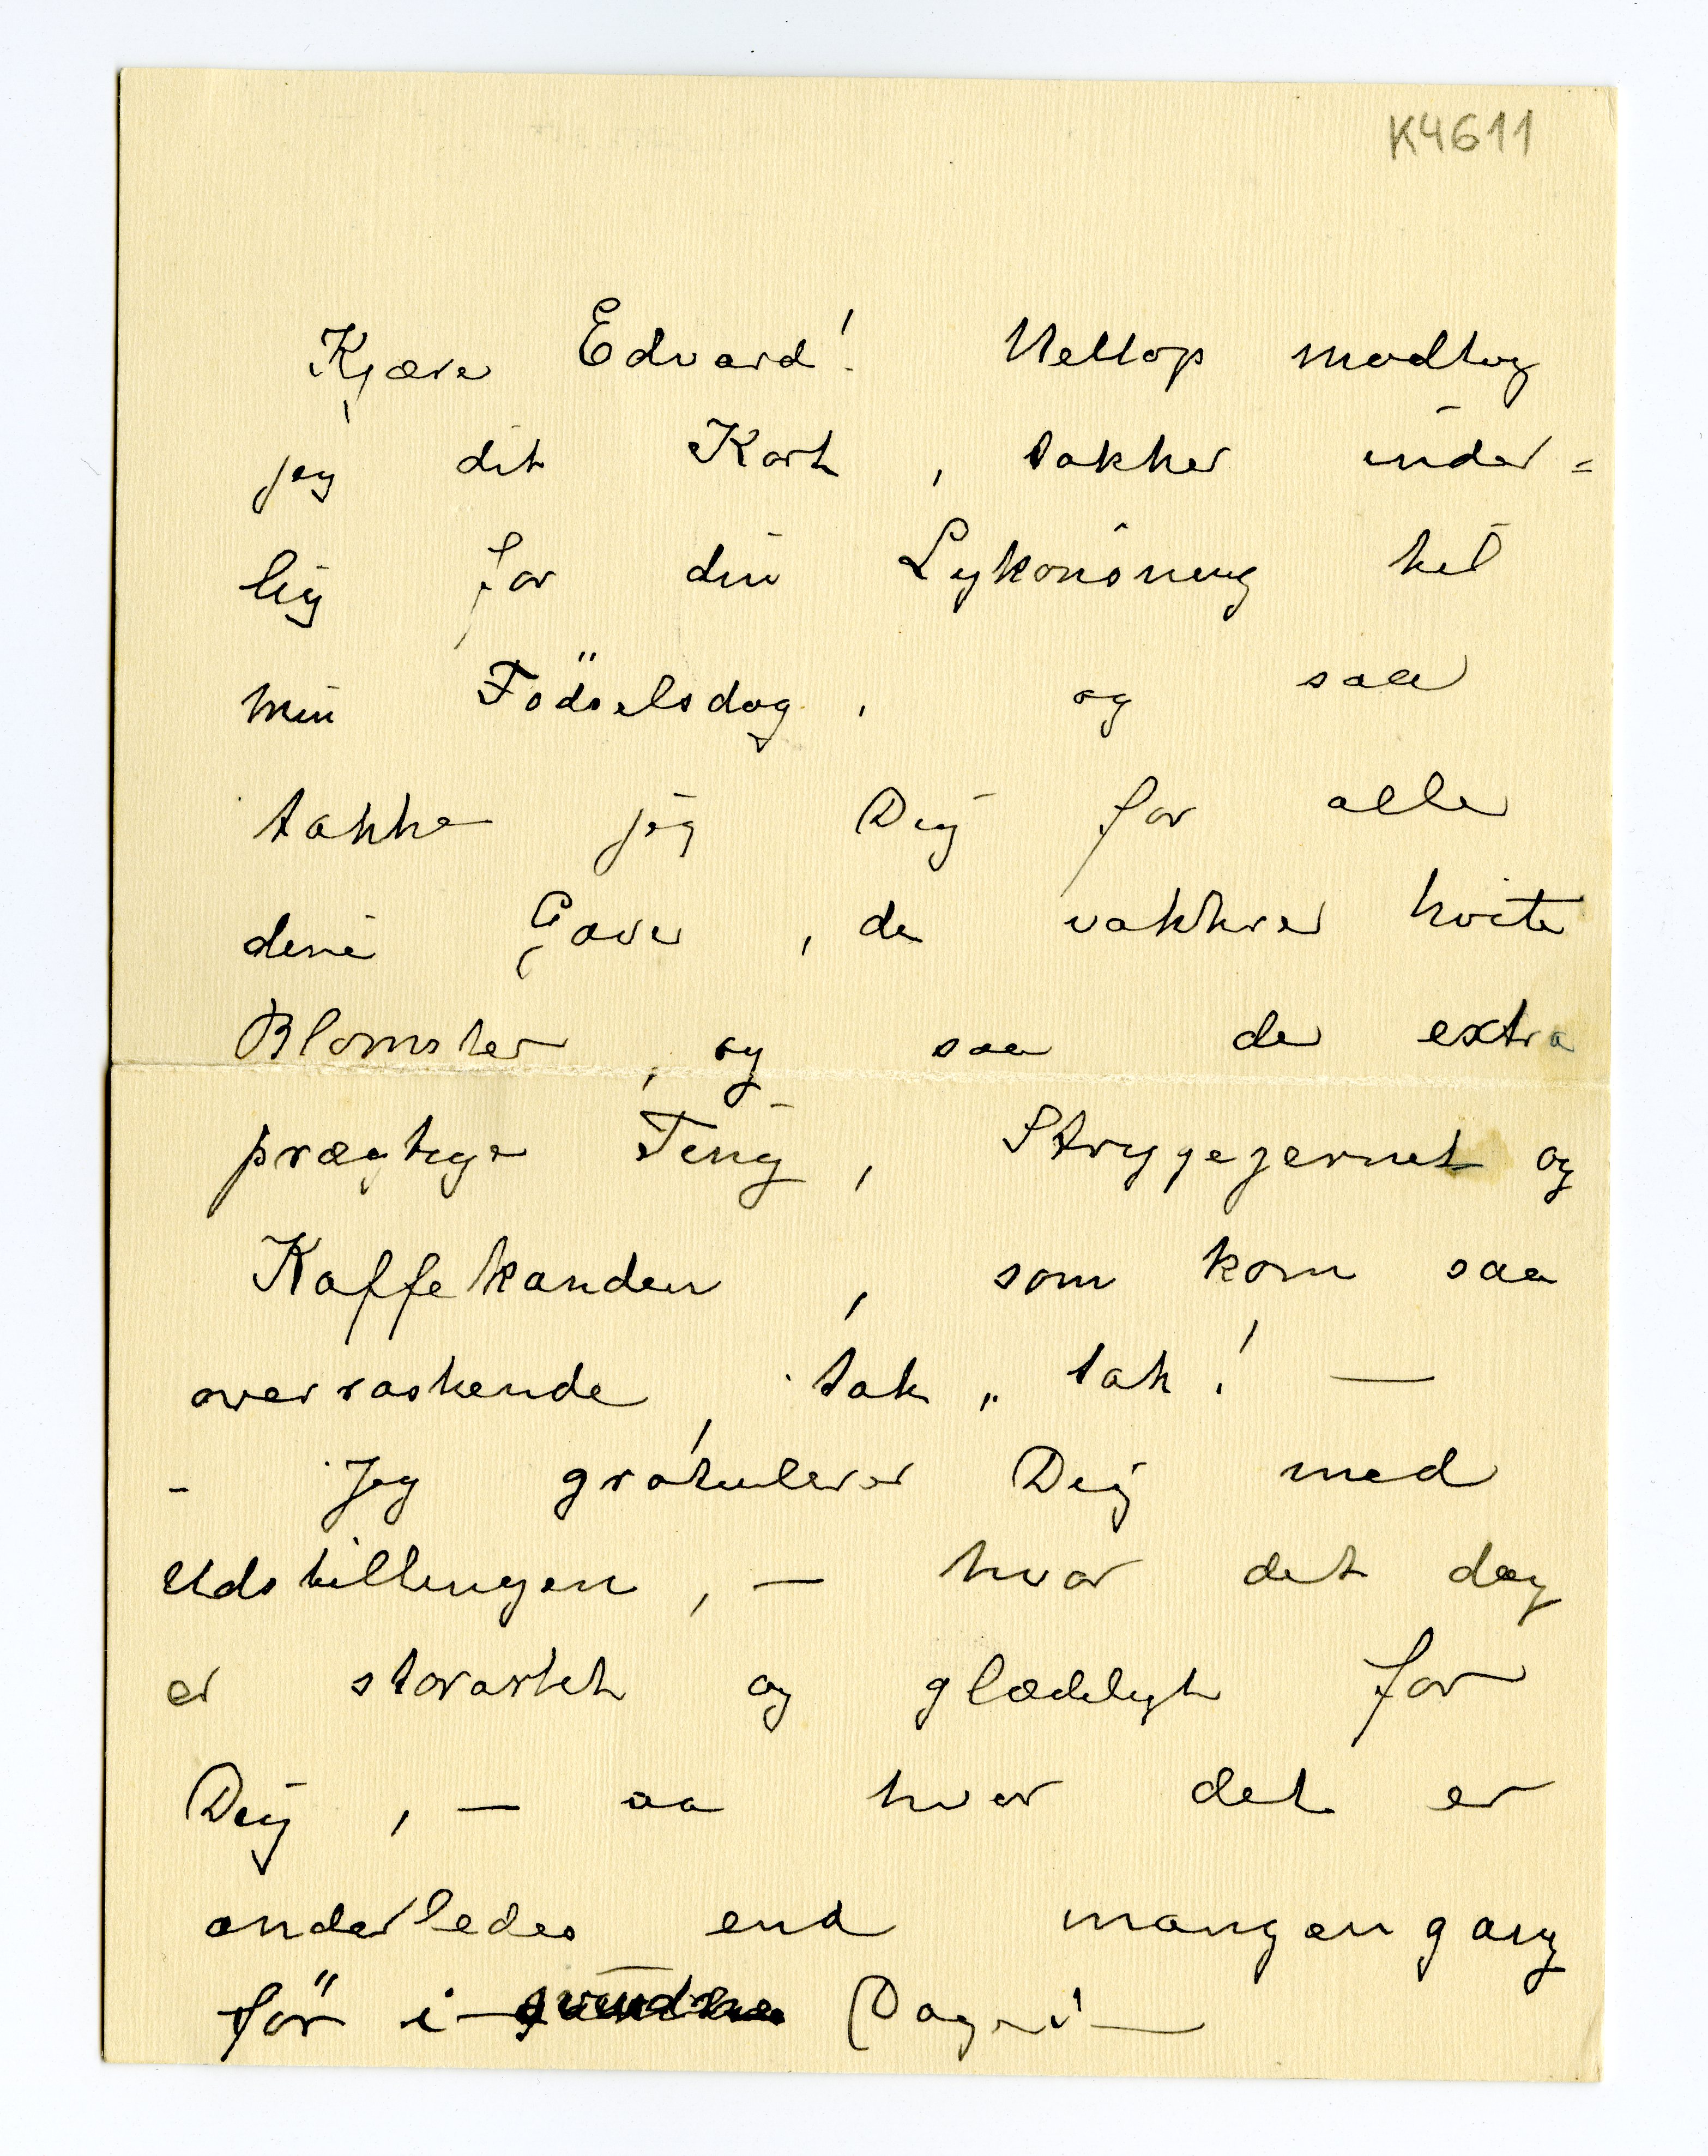 K4611
Kjære Edvard! Nettop modtog
jeg dit Kort, takker inder=
lig for din Lykönsning til
min Födselsdag, og saa
takke jeg Dig for alle
dine Gaver, de vakkre hvite
Blomster, og saa de extra
prægtige Ting, Strygejernet og
Kaffekanden, som kom saa
overraskende, tak „ tak! —
- Jeg gratulerer Dig med
Udstillingen, — hvor det dog
er storartet og glædeligt for
Dig, — aa hvor det er
anderledes end mangengang
för i svundne Dage! —